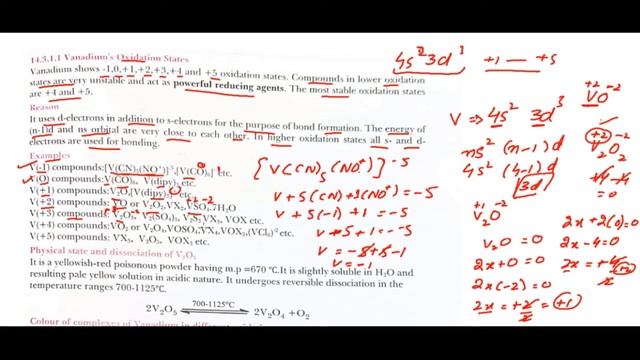 14.3.1.1 Vanadium's Oxidation States
Vanadium shows -1,0,+1,+2,+3,+4 and +5 oxidation states. Compounds in lower oxidation
states are very unstable and act as powerful reducing agents. The most stable oxidation states
are +4 and +5.
Reason
It uses d-electrons in addition to s-electrons for the purpose of bond formation. The energy of
(n-1)d and ns orbital are very close to each other. In higher oxidation states all s- and d-
electrons are used for bonding.
Examples
V(-1) compounds:
V(0) compounds: V(CO)6, V(dipy)3 etc.
V(+1) compounds:
V(+2) compounds: VO or V2O2,VX2,VSO4.7H2O
V(+3) compounds: V2O3, V2(SO4)3, VX3, VOX etc.
V(+4) compounds: VO2 or V2O4,VOSO4,VX4,VOX2,(VCl6)-2 etc.
V(+5) compounds: VX5, V2O5, VOX3 etc.
Physical state and dissociation of V2O5
It is a yellowish-red poisonous powder having m.p =670 °C.It is slightly soluble in H2O and
resulting pale yellow solution in acidic nature. It undergoes reversible dissociation in the
temperature ranges 700-1125°C.
700-1125°C
2V2O5 ⇌ 2V2O4 + O2
4s2 3d3 +1 — +5
V ⇒ 4s2 3d3
ns2 (n-1)d
4s2 (4-1)d
3d
[V(CN)5(NO+)]-5
V + 5(-1) + 1 = -5
V - 5 + 1 = -5
V = -1
+1 -2
V2O
V2O = 0
2x + 0 = 0
2x(-2) = 0
+2 -2
VO
V2O2
2x + 2(0) = 0
2x - 4 = 0